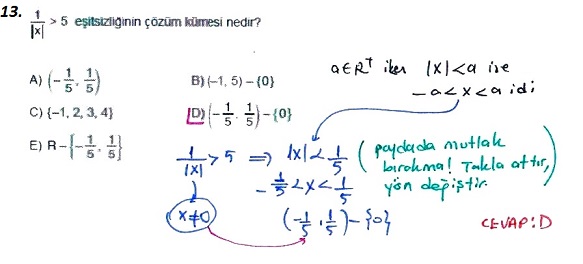 13. 1/|x| > 5 eşitsizliğinin çözüm kümesi nedir?
A) (-1/5, 1/5)
B) (-1, 5) - {0}
C) {-1, 2, 3, 4}
D) (-1/5, 1/5) - {0}
E) R - {-1/5, 1/5}
a∈R⁺ iken |x|<a ise
-a<x<a idi
1/|x| > 5 ⇒ |x| < 1/5 (paydada mutlak
bırakma! Takla attır,
yön değiştir.)
-1/5 < x < 1/5
x≠0
(-1/5, 1/5) - {0}
CEVAP: D